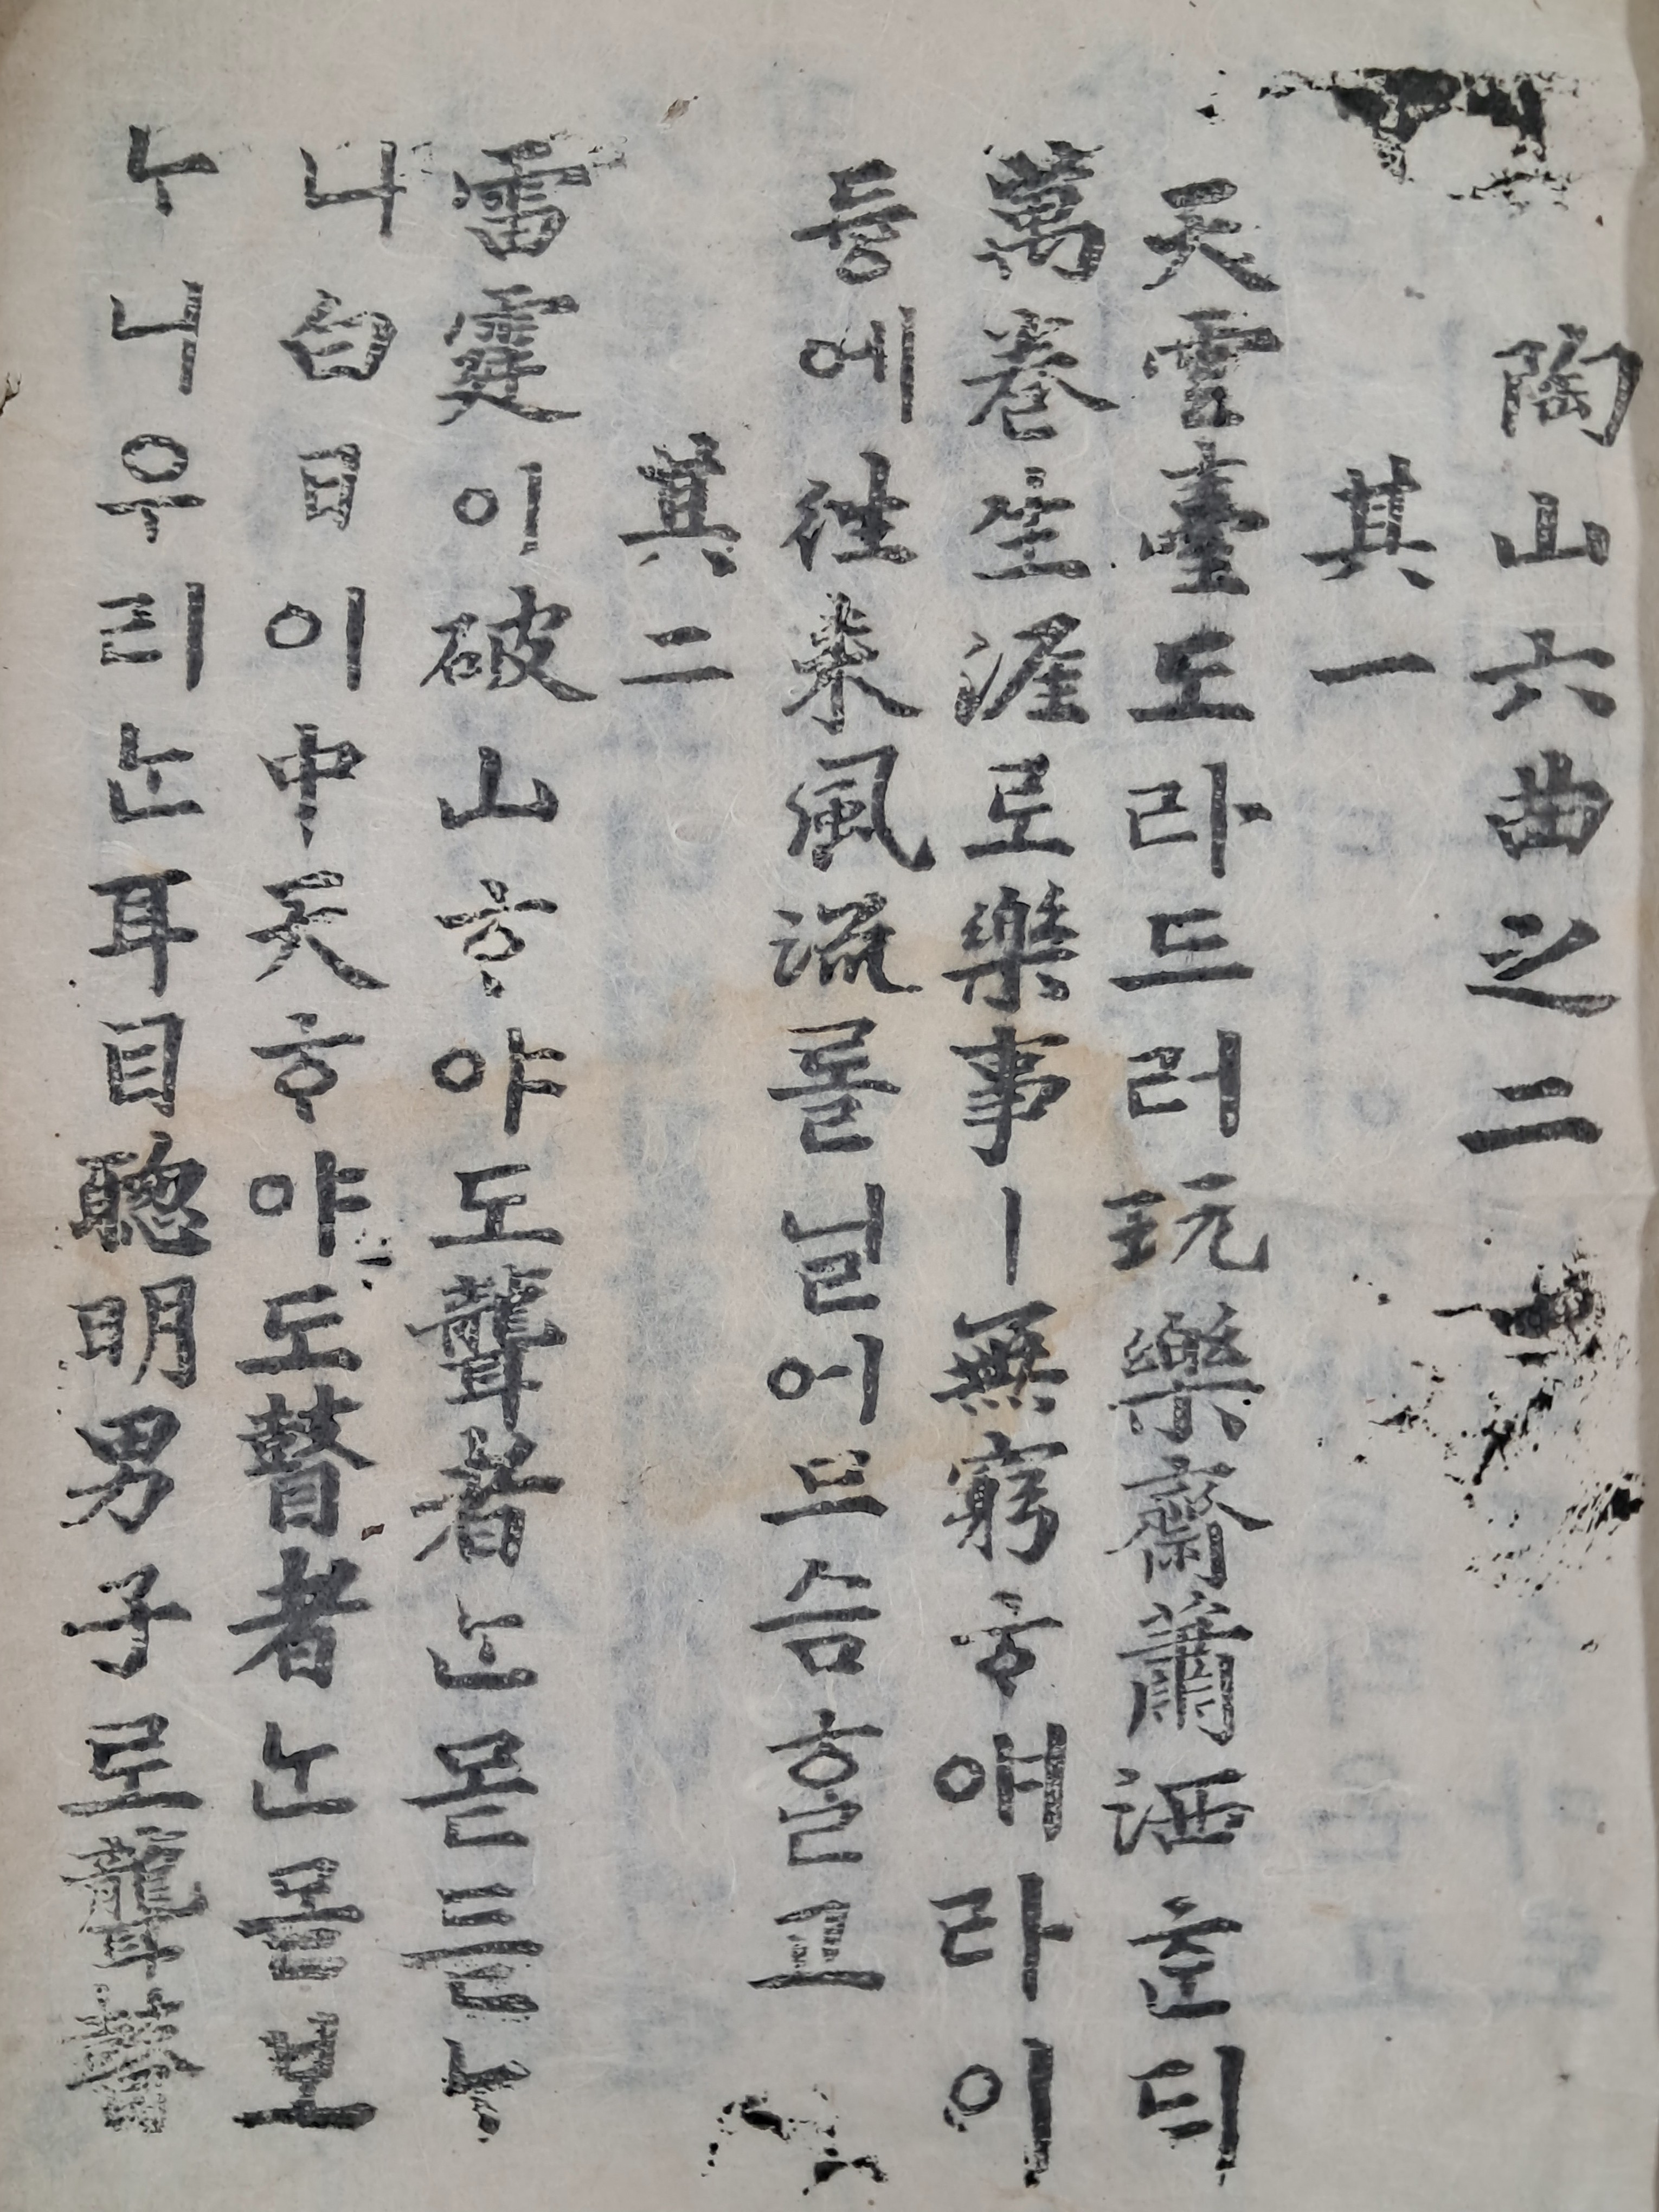 陶山六曲之二
其一
天雲臺도라드러玩樂齋蕭洒ᄒᆞᆫᄃᆡ
萬卷生涯로樂事ㅣ無窮ᄒᆞ얘라이
듕에往來風流ᄅᆞᆯ닐어므슴ᄒᆞᆯ고
其二
雷霆이破山ᄒᆞ야도聾者ᄂᆞᆫ몯듣ᄂᆞ
니白日이中天ᄒᆞ야도瞽者ᄂᆞᆫ몯보
ᄂᆞ니우리ᄂᆞᆫ耳目聰明男子로聾瞽